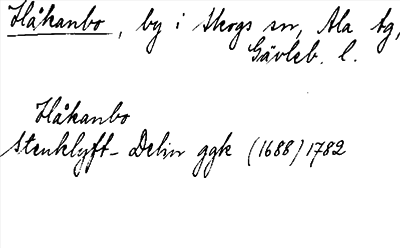 Håkanbo, by i Skogs sn, Ala tg,
Gävleb. l.
Håkanbo
Stenklyft- Delin ggk (1688) 1782